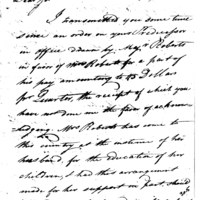 I transmitted you some time
since an order on your Predecessor
in office drawn by Majr. Roberts
in favor of Mrs Roberts for a part of
his pay amounting to 15 D. Mars
pr Quarter, the receipt of which you
have not done me the favor of acknow-
ledging. Mrs Roberts has come to
this country at the instance of her
husband, for the education of her
children, & had this arrangement
made for her support in part, should